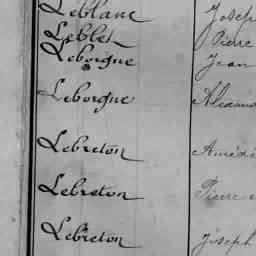 Leblanc Joseph
Leblet Pierre
Leborgne Jean
Leborgne
Lebreton Amédé
Lebreton Pierre
Lebreton Joseph